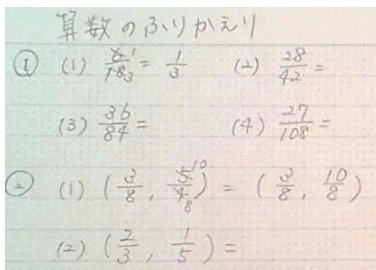 算数のふりかえり
① (1) 6/18 1 3 = 1/3 (2) 28/42 =
(3) 36/84 = (4) 27/108 =
② (1) (3/8, 5/4 10 8) = (3/8, 10/8)
(2) (2/3, 1/5) =